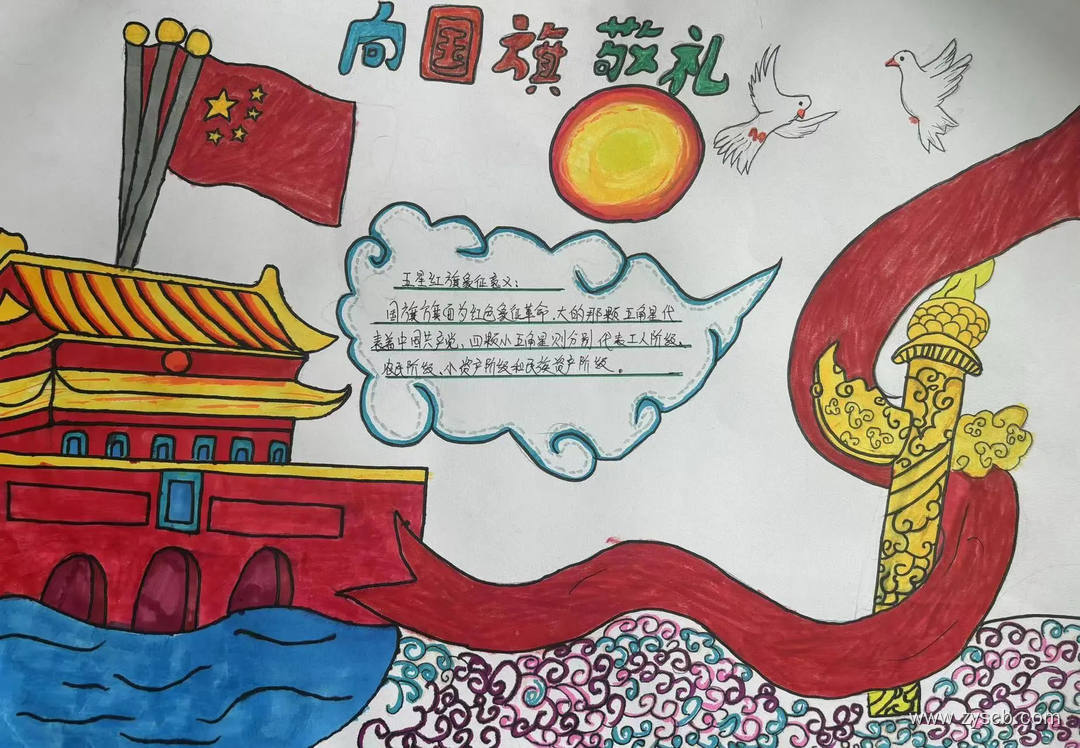 向国旗敬礼
五星红旗象征意义:
国旗旗面为红色象征革命,大的那颗五角星代
表着中国共产党,四颗小五角星则分别代表工人阶级、
农民阶级、小资产阶级和民族资产阶级。
www.zyscb.com